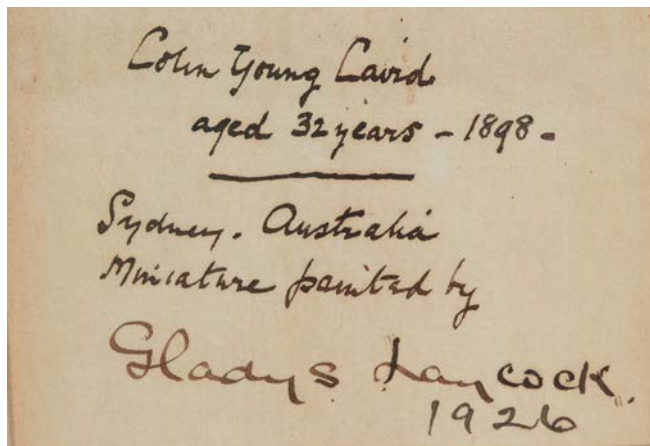 Colin Young Caird
aged 32 years - 1898 -
Sydney. Australia
Miniature painted by
Gladys Laycock.
1926